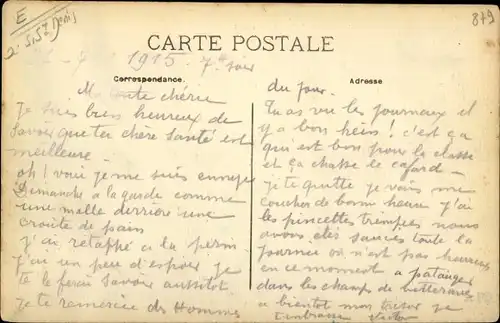 E
2. S. St Denis
879
CARTE POSTALE
1915. 7h soir
Correspondance.
Adresse
Ma toute chérie
Je suis bien heureux de
savoir que ta chère santé est
meilleure.
oh ! voui je me suis ennuyé
Dimanche a la garde comme
une malle derrière une
croûte de pain
j'ai retappé a la perm
j'ai un peu d'espoir je
te le ferai savoir aussitot
je te remercie des Hommes
du jour.
Tu as vu les journaux il
y a bon heins ! c'est ça
qui est bon pour la classe
et ça chasse le cafard —
je te quitte je vais me
coucher de bonne heure j'ai
les pincettes trempées nous
avons étés saucés toute la
journée on n'est pas heureux
en ce moment a patauger
dans les champs de betteraves
a bientot mon trésor je
t'embrasse